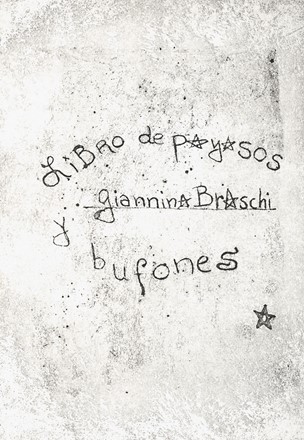 LiBRo de payasos
giannina Braschi
y
bufones